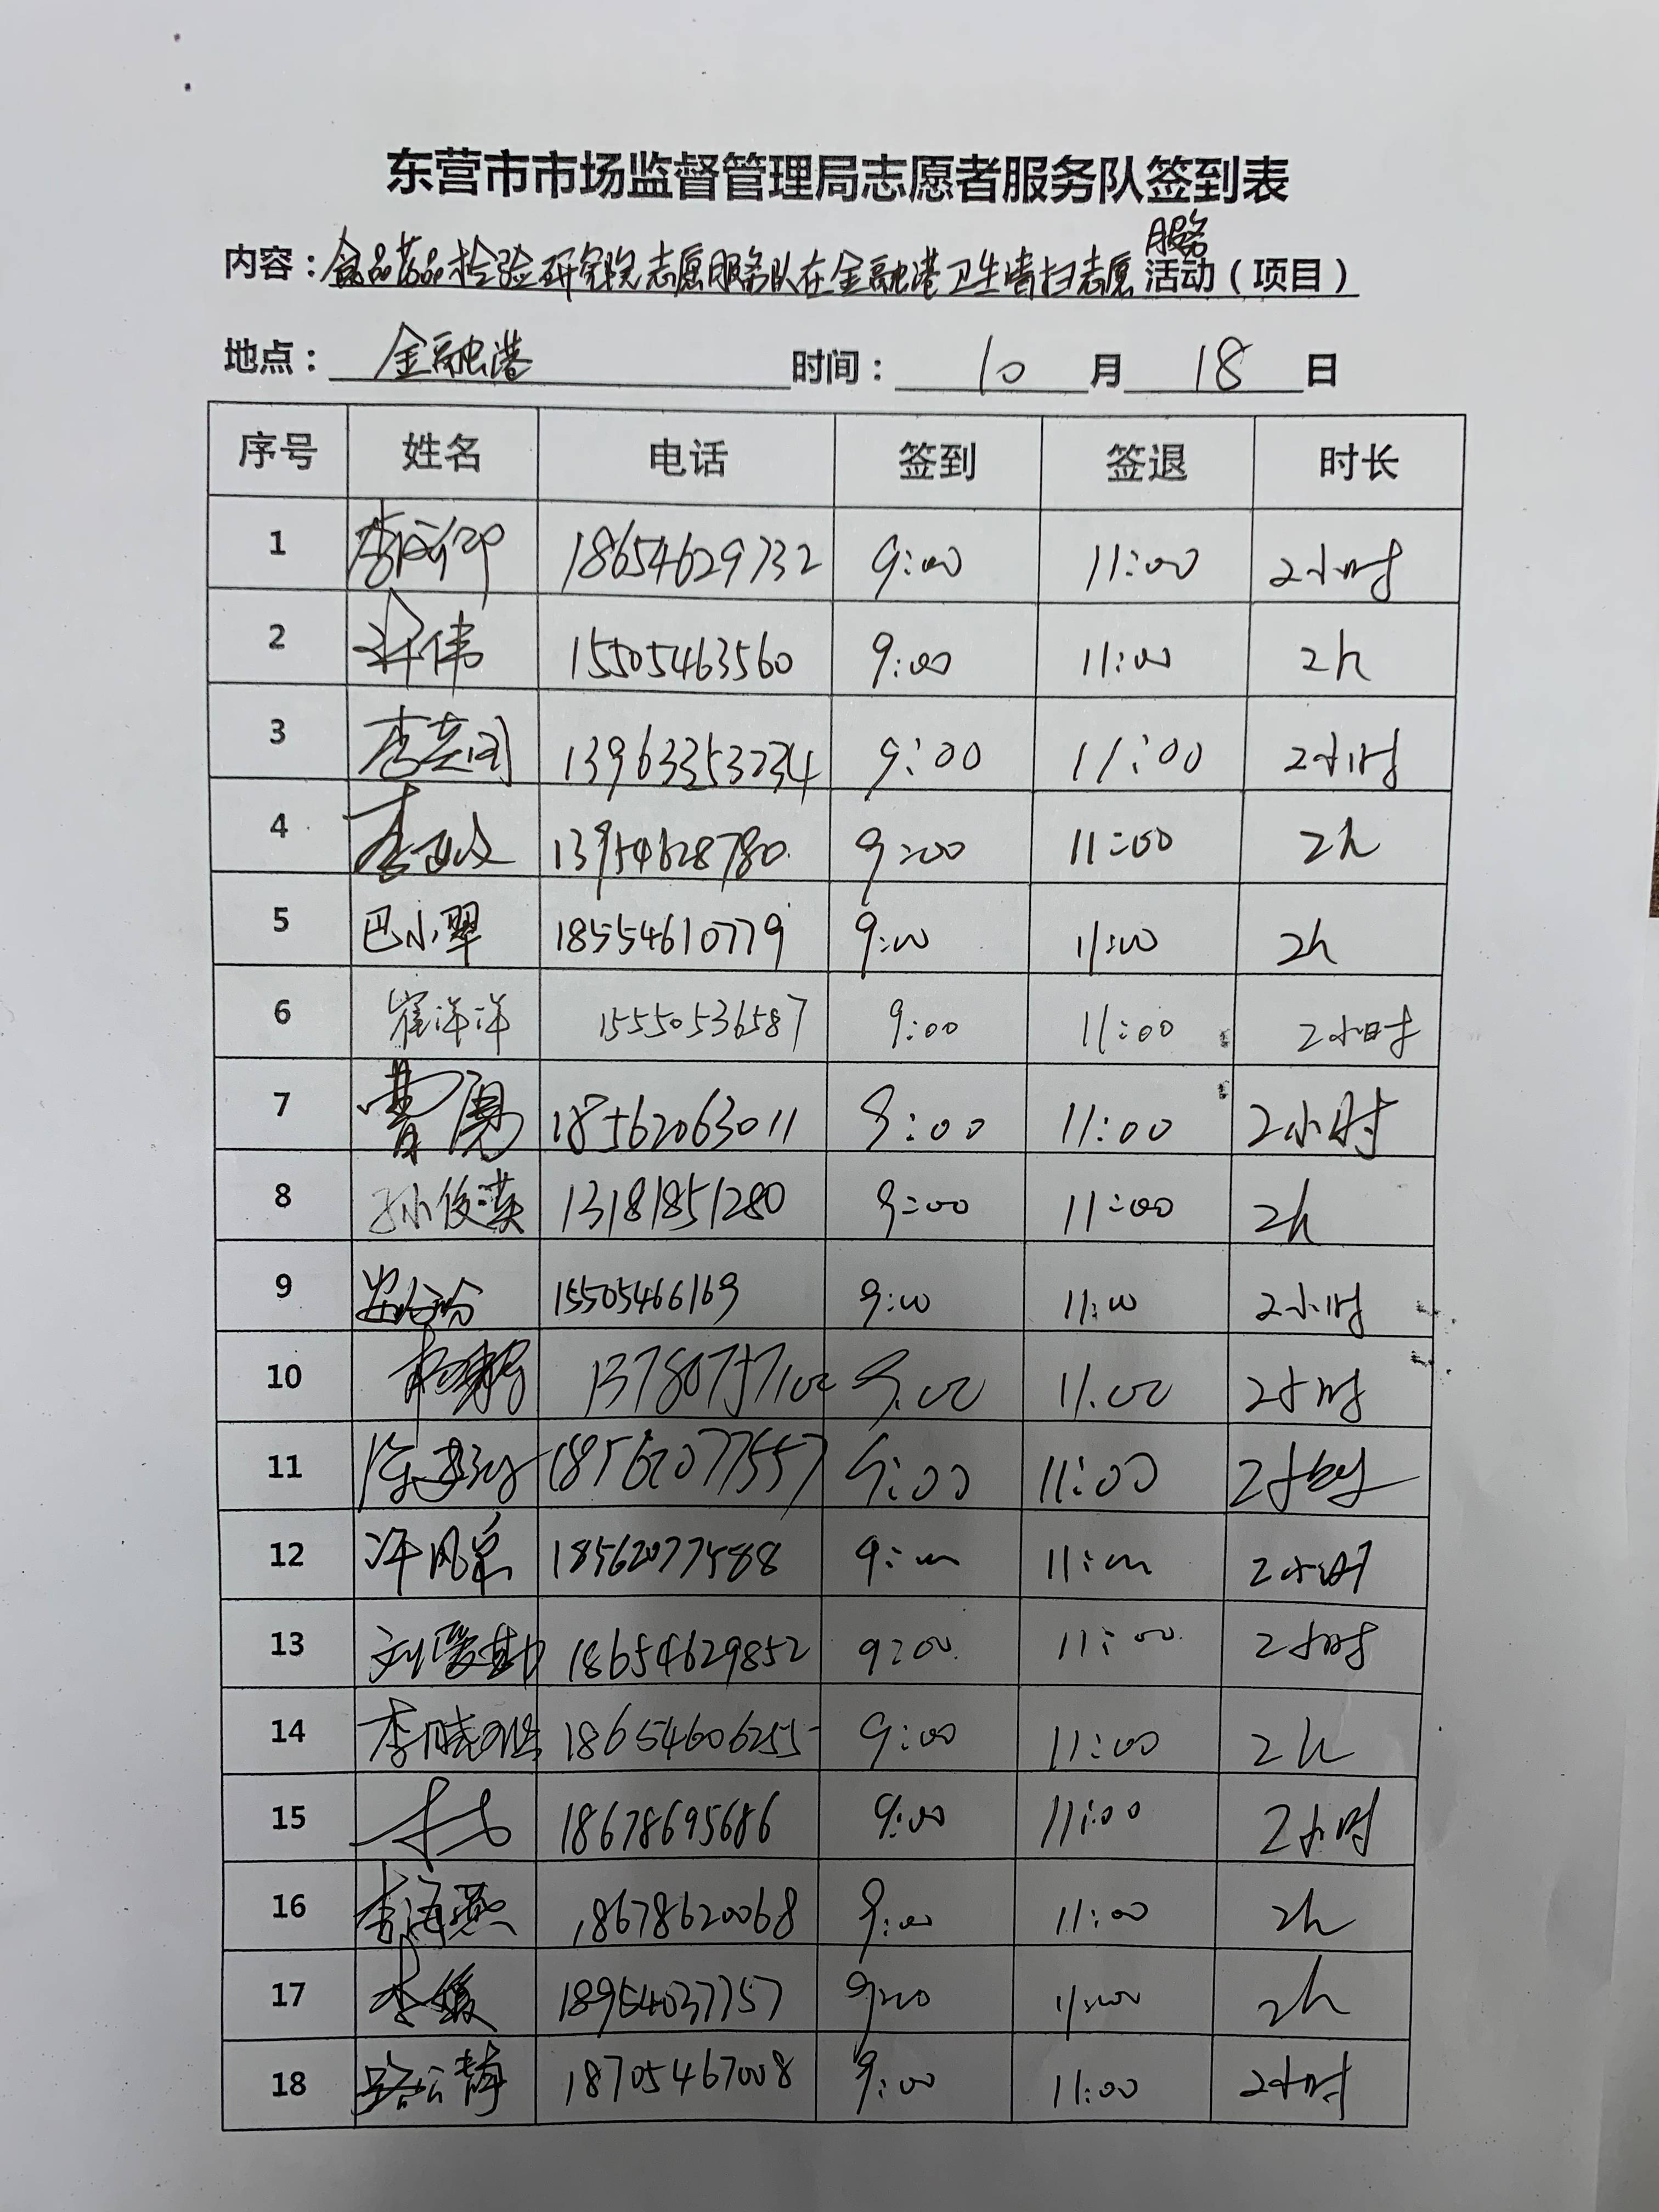 东营市市场监督管理局志愿者服务队签到表
服务
内容：食品药品检验研究院志愿服务队在金融港卫生清扫志愿活动（项目）
地点：金融港 时间：10月18日
序号 姓名 电话 签到 签退 时长
1 18654629732 9:00 11:00 2小时
2 许伟 15505463560 9:00 11:00 2h
3 13963353234 9:00 11:00 2小时
4 13954628780 9:00 11:00 2h
5 巴小翠 18554610779 9:00 11:00 2h
6 崔洋洋 15550536587 9:00 11:00 2小时
7 曹勇 18562063011 9:00 11:00 2小时
8 孙俊漢 13181851280 9:00 11:00 2h
9 15505466169 9:00 11:00 2小时
10 9:00 11:00 2小时
11 18562077557 9:00 11:00 2小时
12 18562077588 9:00 11:00 2小时
13 刘爱勤 18654629852 9:00 11:00 2小时
14 18654606255 9:00 11:00 2h
15 18678695686 9:00 11:00 2小时
16 李海燕 18678620068 9:00 11:00 2h
17 李媛 18954037757 9:00 11:00 2h
18 路云静 18705467008 9:00 11:00 2小时